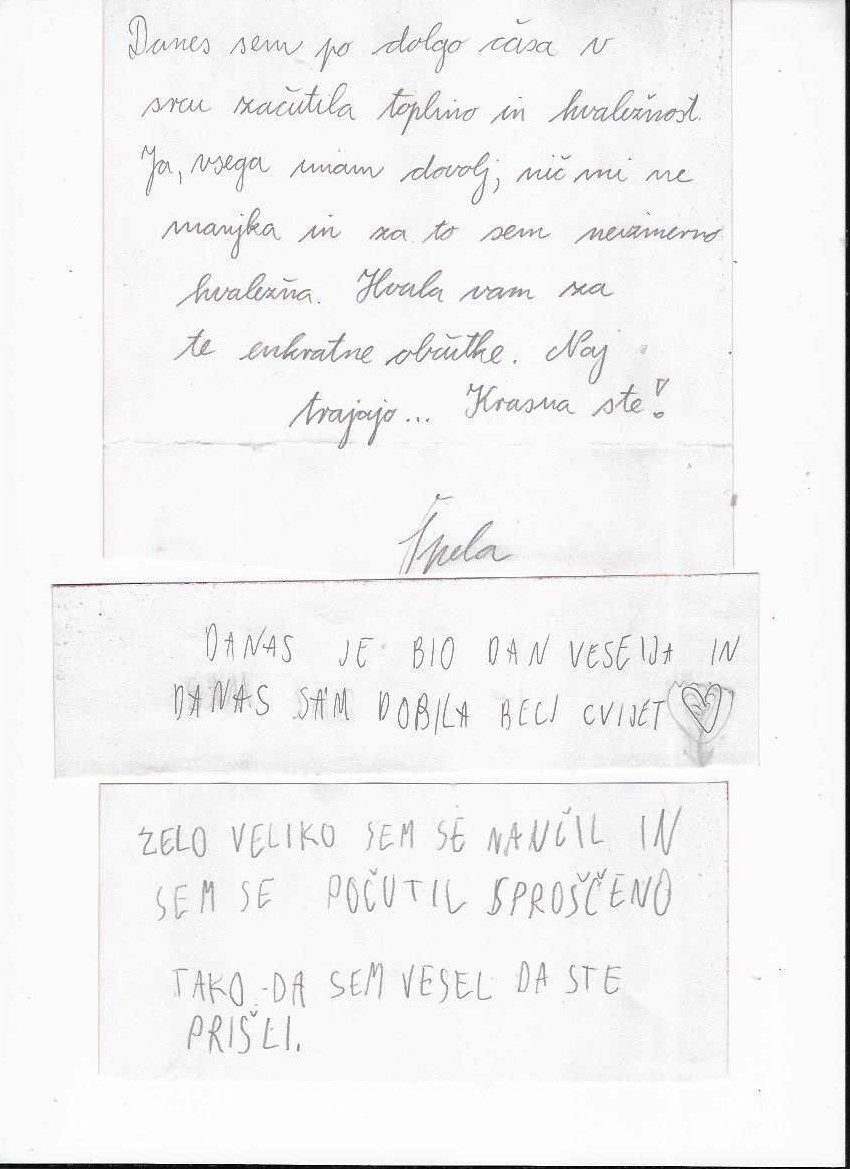 Danes sem po dolgo časa v
srcu začutila toplino in hvaležnost.
Ja, vsega imam dovolj, nič mi ne
manjka in za to sem neizmerno
hvaležna. Hvala vam za
te enkratne občutke. Naj
trajajo... Krasna ste!
Špela
DANAS JE BIO DAN VESELJA IN
DANAS SAM DOBILA BELI CVIJET
ZELO VELIKO SEM SE NAUČIL IN
SEM SE POČUTIL SPROŠČENO
TAKO-DA SEM VESEL DA STE
PRIŠLI.